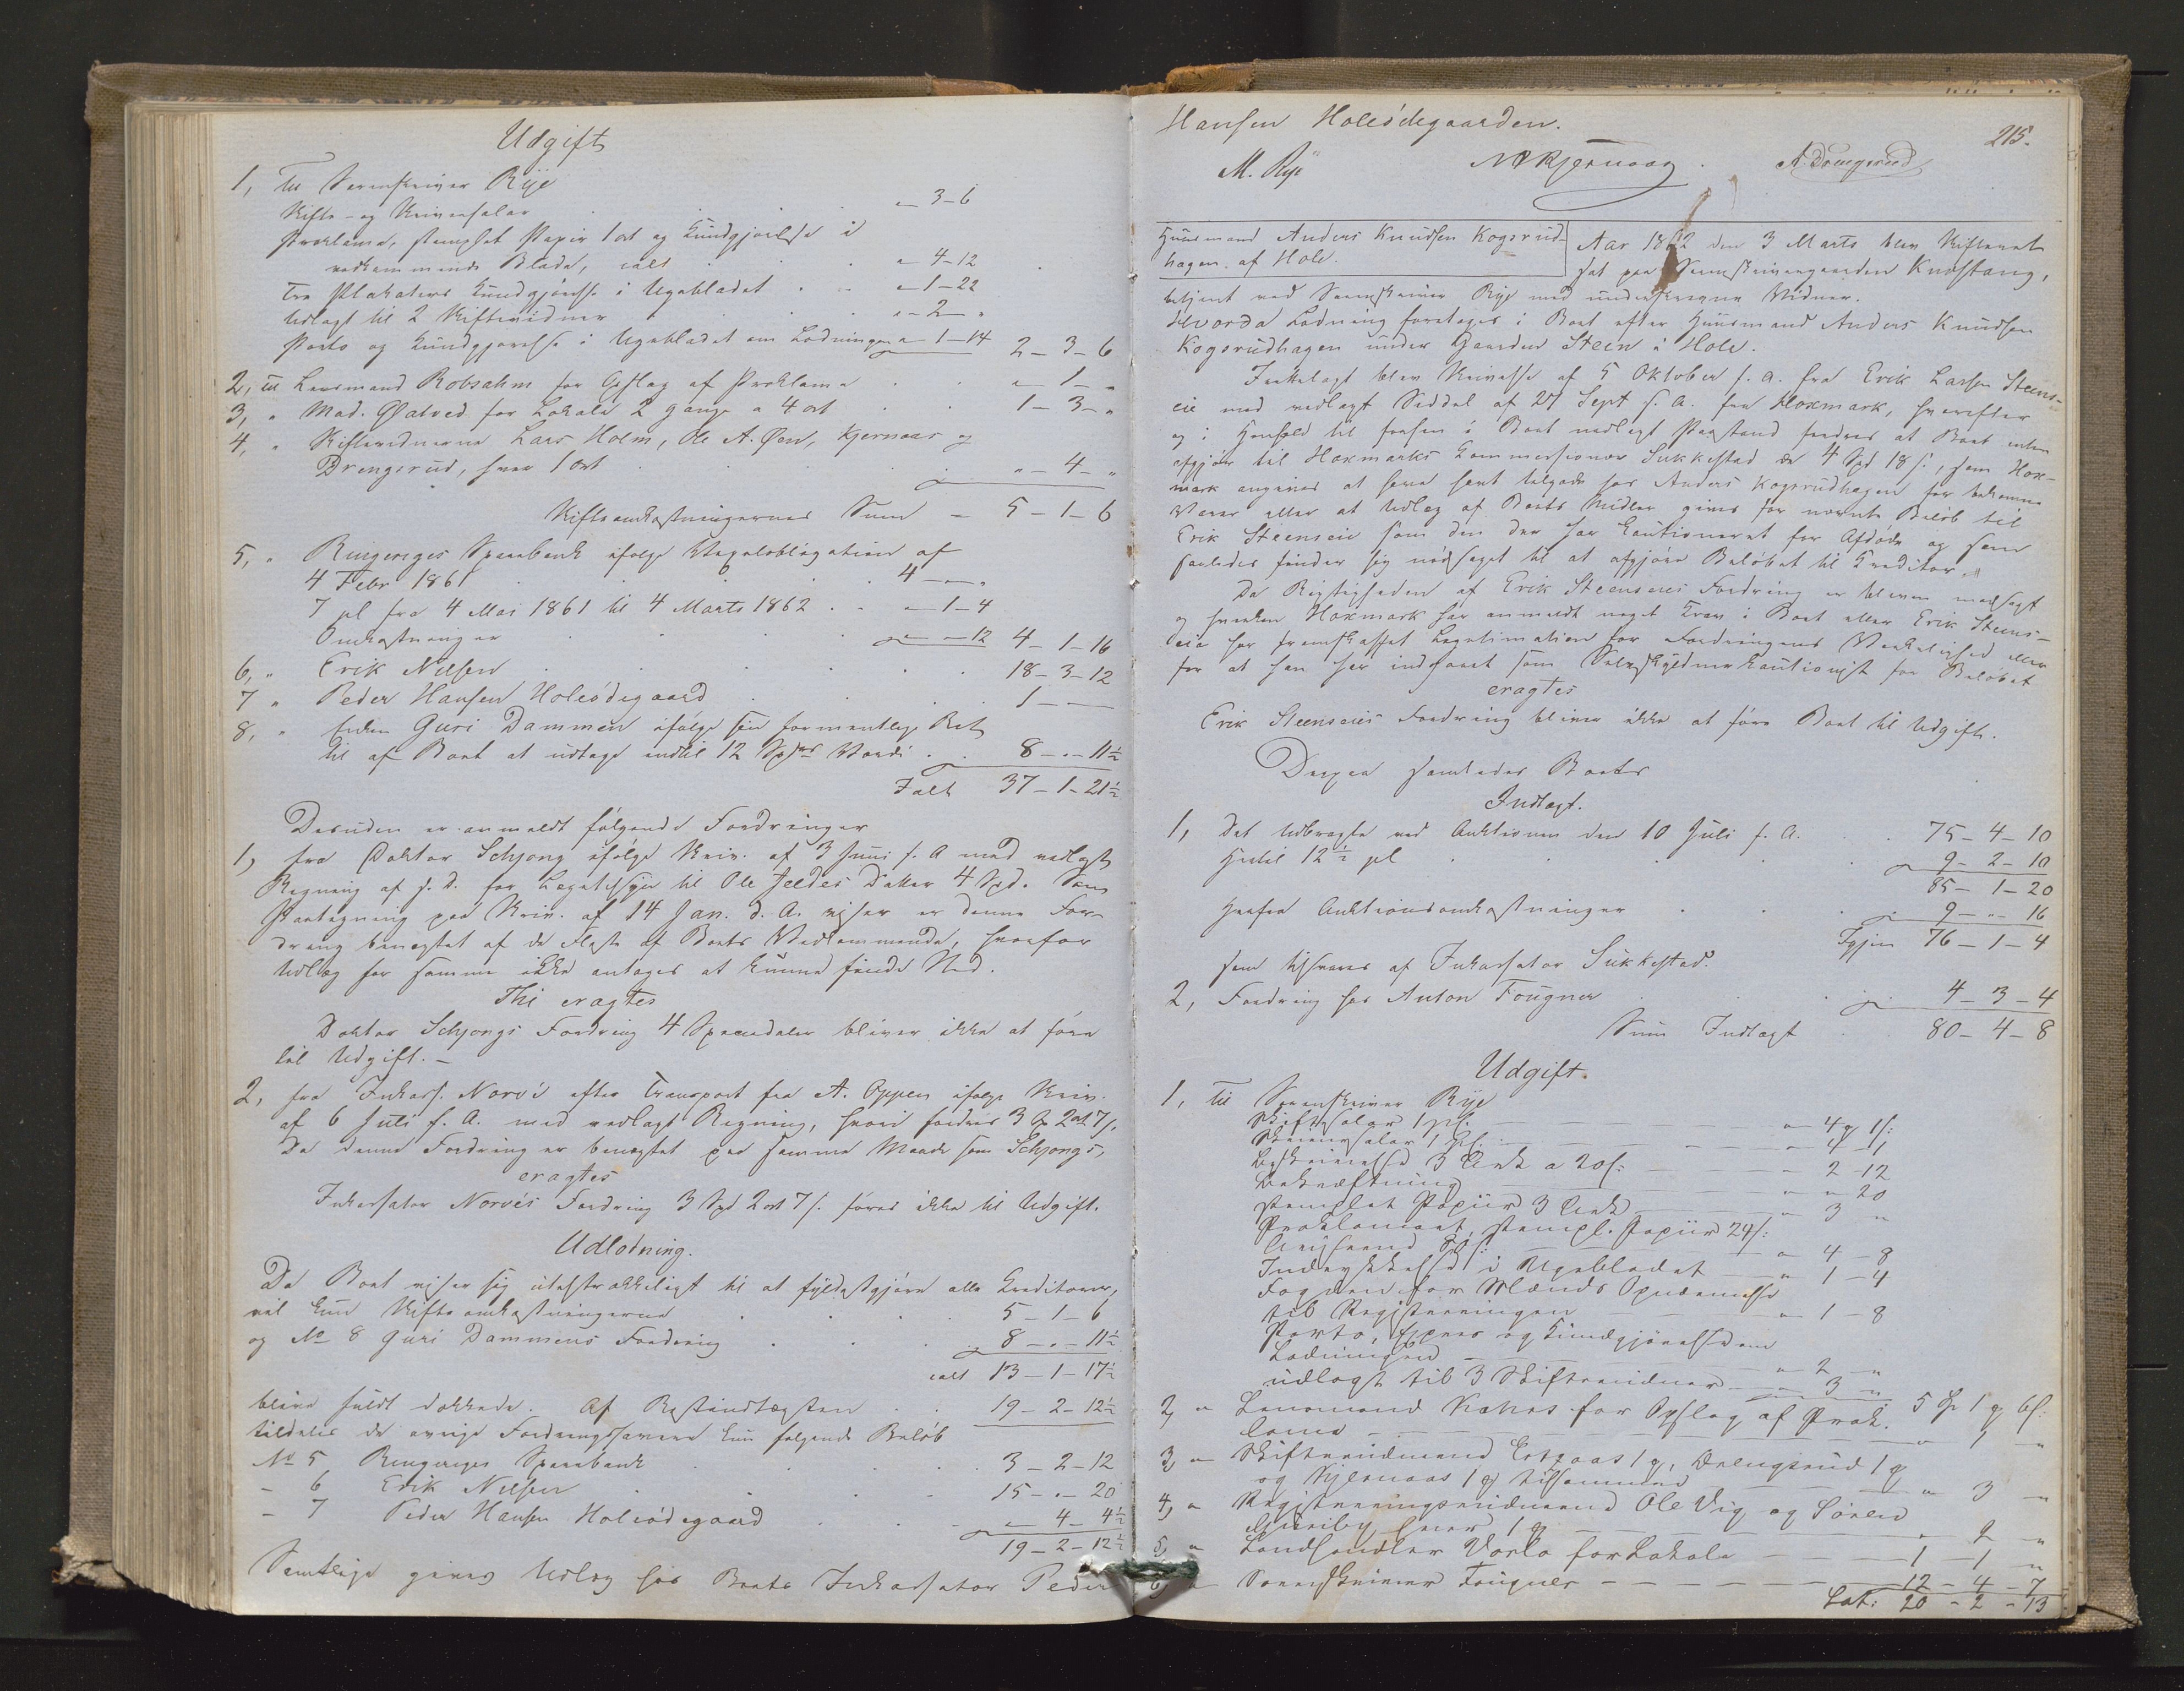 Udgift
1, Til Sorenskriver Rye
Skifte- og Skriversalær . . . „ 3 – 6
Proklama, stemplet Papir 1 ort og Kundgjørelse i
vedkommende Blade, ialt . . . „ 4 – 12
Tre Plakaters Kundgjørelse i Ugebladet . . „ 1 – 22
Udlagt til 2 Skiftevidner . . . „ – 2 – „
Porto og Kundgjørelse i Ugebladet om Lodningen „ 1 – 14 2 – 3 – 6
2, til Lensmand Robsahm for Opslag af Proklama . . „ 1 – „
3, „ Mad. Øatved for Lokale 2 gange a 4 ort . . 1 – 3 – „
4, „ Skiftevidnerne Lars Holm, Ole A. Øen, Kjernaas og
Drengsrud, hver 1 ort . . . „ – 4 – „
Skifteomkostningernes Sum – 5 – 1 – 6
5, „ Ringeriges Sparebank ifølge Vexelobligation af
4 Febr 1861 . . . 4 – „ – „
7 pCt fra 4 Mai 1861 til 4 Marts 1862 . . „ – 1 – 4
Omkostninger . . . „ – „ – 12 4 – 1 – 16
6, „ Erik Nilsen . . . 18 – 3 – 12
7 „ Peder Hansen Holeødegaard . . . 1 – –
8, „ Enken Guri Dammen ifølge sin formentlige Ret
til af Boet at udtage indtil 12 Spdrs Værdi . . 8 – „ – 11½
Ialt 37 – 1 – 21½
Desuden er anmeldt følgende Fordringer
1, fra Doktor Schjong ifølge Skriv. af 3 Juni f. A med vedlagt
Regning af s. D. for Lægetilsyn til Ole Jeldes Datter 4 Spd. Som
Paategning paa Skriv. af 14 Jan. d. A. viser er denne For-
dring benægtet af de Fleste af Boets Vedkommende, hvorfor
Udlæg for samme ikke antages at kunne finde Sted.
Thi eragtes
Doktor Schjongs Fordring 4 Speciedaler bliver ikke at føre
til Udgift. –
2, fra Inkass. Norvi efter Transport fra A. Oppen ifølge Skriv.
af 6 Juli f. A. med vedlagt Regning, hvori fordres 3 Sp 2 ort 7 s.
Da denne Fordring er benægtet paa samme Maade som Schjongs,
eragtes
Inkassator Norvis Fordring 3 Spd 2 ort 7 s. føres ikke til Udgift.
Udlodning.
Da Boet viser sig utilstrækkeligt til at fyldestgjøre alle Kreditorer,
vil kun Skifteomkostningerne . . . 5 – 1 – 6
og No 8 Guri Dammens Fordring . . . 8 – „ – 11½
ialt 13 – 1 – 17½
blive fuldt dækkede. Af Restindtægten . . 19 – 2 – 12½
tildeles de øvrige Fordringshavere kun følgende Beløb
No 5 Ringeriges Sparebank . . . 3 – 2 – 12
– 6 Erik Nilsen . . . 15 – „ – 20
– 7 Peder Hansen Holeødegaard . . . „ – 4 – 4½
19 – 2 – 12½
Samtlige gives Udlæg hos Boets Inkassator Peder
Hansen Holeødegaarden.
215.
M. Rye N P Kjernaas. A. Drengsrud
Huusmand Anders Knudsen Kogsrud-
hagen af Hole.
Aar 1862 den 3 Marts blev Skifteret
sat paa Sorenskrivergaarden Knestang,
betjent ved Sorenskriver Rye med underskrevne Vidner.
Hvorda Lodning foretoges i Boet efter Huusmand Anders Knudsen
Kogsrudhagen under Gaarden Steen i Hole.
Fremlagt blev Skrivelse af 5 Oktober f. A. fra Erik Larsen Steens-
eie med vedlagt Seddel af 27 Sept s. A. fra Hoxmark, hvorefter
og i Henhold til hvem i Boet nedlagt Paastand fordres at Boet enten
afgjør til Hoxmarks Kommissionær Sukkestad de 4 Spd 18 s., som Hox-
mark angives at have havt tilgode hos Anders Kogsrudhagen for bekomne
Varer eller at Udlæg af Boets Midler gives for nævnte Beløb til
Erik Steenseie som den der har kautioneret for Afdøde og som
saaledes finder sig nødsaget til at afgjøre Beløbet til Kreditor.
Da Rigtigheden af Erik Steenseies Fordring er bleven modsagt
og hverken Hoxmark har anmeldt noget Krav i Boet eller Erik Steens-
eie har fremskaffet Legitimation for Fordringens Værkelighed eller
for at han har indfriet som Selvskyldnerkautionist for Beløbet
eragtes
Erik Steenseies Fordring bliver ikke at føre Boet til Udgift.
Derpaa samledes Boets
Indtægt.
1, Det Udbragte ved Auktionen den 10 Juli f. A. . . 75 – 4 – 10
Hertil 12½ pCt . . . 9 – 2 – 10
85 – 1 – 20
Herfra Auktionsomkostninger . . . 9 – „ – 16
Igjen 76 – 1 – 4
som tilsvares af Inkassator Sukkestad.
2, Fordring hos Anton Fougner . . . 4 – 3 – 4
Sum Indtægt 80 – 4 – 8
Udgift.
1, Til Sorenskriver Rye
Skiftesalær 1 pCt. – – „ 4 ₰ 1 s:
Skriversalær 1 pCt. – – „ 4 – 1
Beskrivelse 3 Ark a 20 s: – – 2 – 12
Bekræftning – – „ „ 20
stemplet Papiir 3 Ark – – „ 3 „
Proklamaet, stempl. Papiir 24 s:
Indrykkelse i Ugebladet – „ 4 – 8
Fogden for Mænds Opnævnelse „ 1 – 4
til Registreringen – – „ 1 – 8
Porto, og Kundgjørelse om
Lodningen – – „ 2 „
udlagt til 3 Skiftevidner – – „ 3 „ 5 Sp 1 ₰ 6 s:
2, „ Lensmand for Opslag af Prok-
lama – – „ 1 „
3, „ Skiftevidnerne 1 ₰, Drengsrud 1 ₰
og Kjernaas 1 ₰ tilsammen – – „ 3 „
4, „ Registreringsvidnerne Ole Vig og Søren
hver 1 ₰ – – „ 2 „
5, „ Landhandler for Lokale – – 1 – 1 „
6, „ Sorenskriver Fougner – – – 12 – 4 – 7
Lat: 20 – 2 – 13